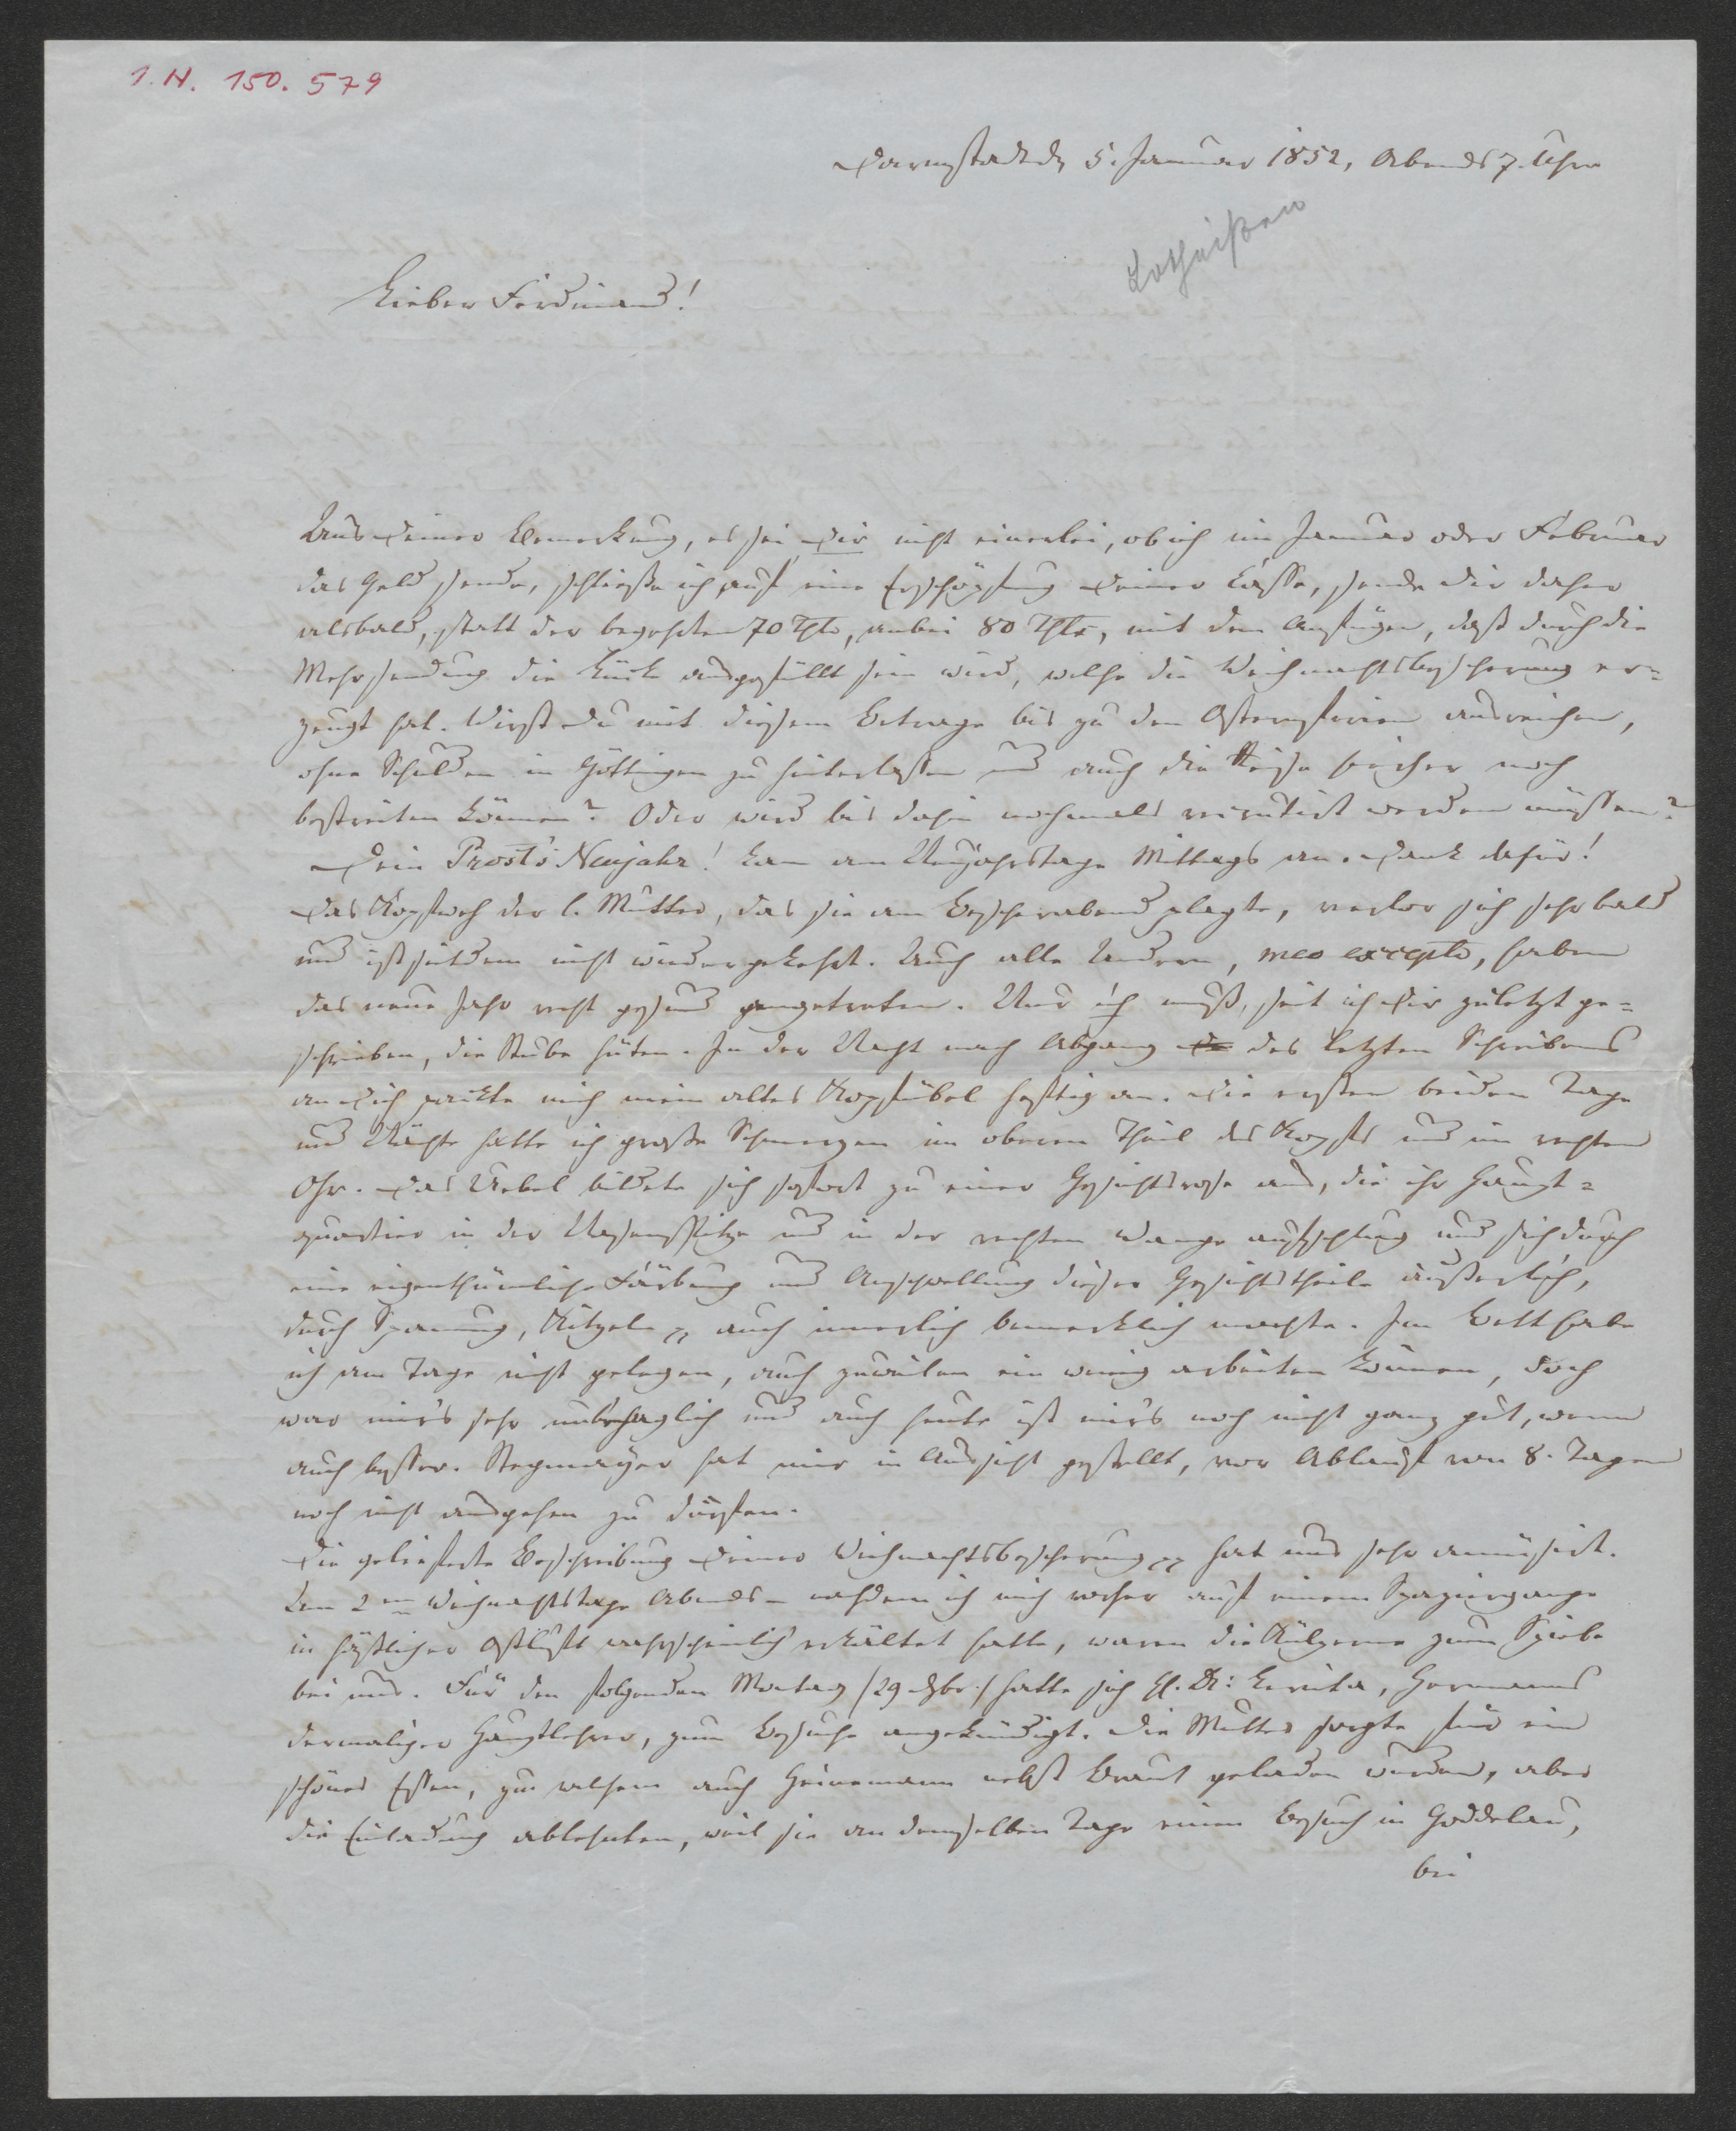 I. N. 150.579
Darmstadt, 5. Januar 1852, Abends 7. Uhr
Lotheißen
Lieber Ferdinand!
Aus Deiner Bemerkung, es sei Dir nicht einerlei, ob ich im Januar oder Februar
das Geld sende, schließe ich auf eine Erschöpfung Deiner Casse, sende Dir daher
alsbald, statt der begehrten 70 Thlr, anbei 80 Thlr, mit dem Anfügen, daß durch die
Mehrsendung die Lücke ausgefüllt sein wird, welche die Weihnachtsbescherung er=
zeugt hat. Wirst Du mit diesem Betrage bis zu den Osterferien ausreichen,
ohne Schulden in Göttingen zu hinterlassen und auch die Reise hierher noch
bestreiten können? Oder wird bis dahin nochmals recrutirt werden müssen?
Dein Prost's Neujahr! kam am Neujahrstage Mittags an. Dank dafür!
Das Kopfweh der l. Mutter, das sie am Bescherabend plagte, verlor sich sehr bald
und ist seitdem nicht wiedergekehrt. Auch alle Andern, meo excepto, haben
das neue Jahr recht gesund angetreten. Nur ich muß, seit ich Dir zuletzt ge=
schrieben, die Stube hüten. In der Nacht nach Abgang des letzten Schreibens
an Dich packte mich mein altes Kopfübel heftig an. Die ersten beiden Tage
und Nächte hatte ich große Schmerzen im oberen Theil des Kopfes und im rechten
Ohr. Das Uebel bildete sich sofort zu einer Gesichtsrose aus, die ihr Haupt=
quartier in der Nasenspitze und in der rechten Wange aufschlug und sich durch
eine eigenthümliche Färbung und Anschwellung dieser Gesichtstheile äußerlich,
durch Spannung, Kitzeln pp auch innerlich bemerklich machte. Im Bett habe
ich am Tage nicht gelegen, auch zuweilen ein wenig arbeiten können, doch
war mir's sehr unbehaglich und auch heute ist mir's noch nicht ganz gut, wenn
auch besser. Stegmayer hat mir in Aussicht gestellt, vor Ablauf von 8. Tagen
noch nicht ausgehen zu dürfen.
Die gelieferte Beschreibung Deiner Weihnachtsbescherung pp hat uns sehr amüsirt.
Am 2ten Weihnachtstage Abends – nachdem ich mich vorher auf einem Spaziergange
in häßlicher Ostluft wahrscheinlich erkältet hatte, waren die zum Spiele
bei uns. Für den folgenden Montag (29 Dzbr.) hatte sich H. Dr: Hermanns
dermaliger Hauptlehrer, zum Besuche angekündigt. Die Mutter sorgte für ein
schönes Essen, zu welchem auch Heinemann nebst Braut geladen wurden, aber
die Einladung ablehnten, weil sie an demselben Tage einen Besuch in Goddelau,
bei